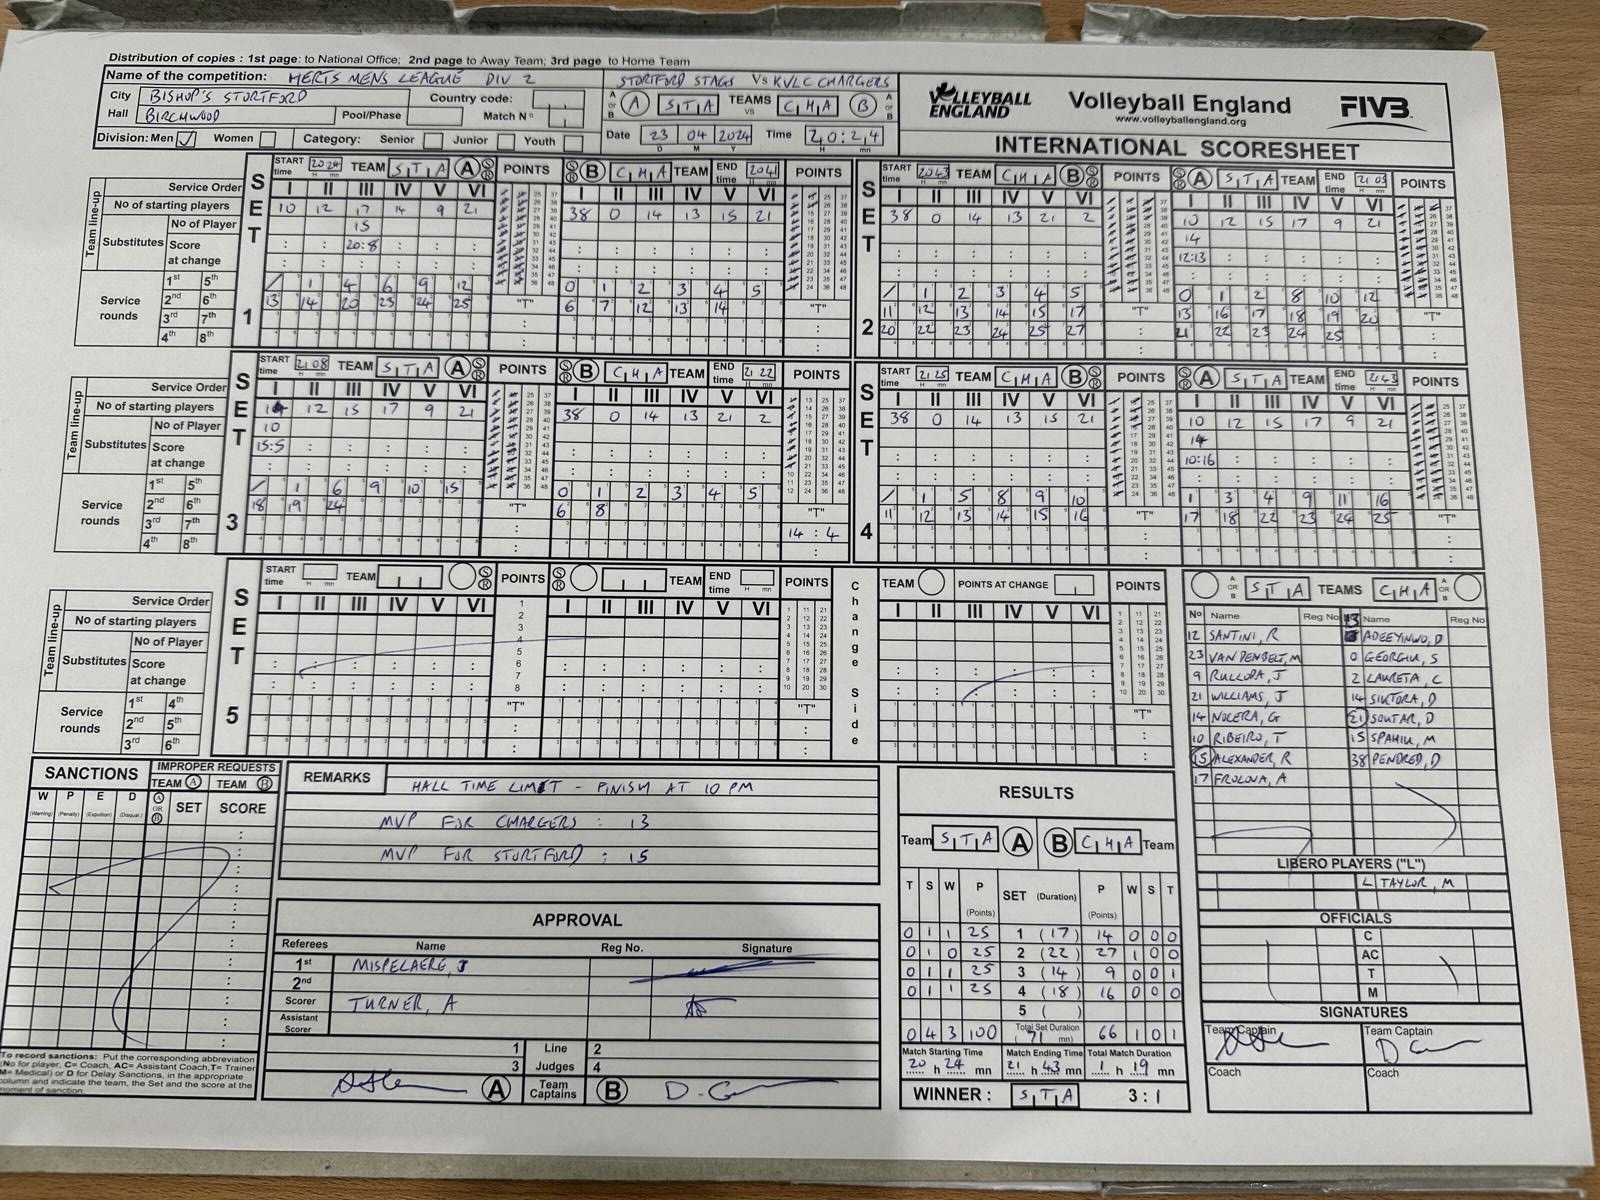 Distribution of copies : 1st page: to National Office; 2nd page to Away Team; 3rd page to Home Team
Name of the competition: HERTS MENS LEAGUE DIV 2
STORTFORD STAGS Vs KVLC CHARGERS
City BISHOP'S STORTFORD Country code:
Hall BIRCHWOOD Pool/Phase Match Nº
A or B A STA TEAMS vs CHA B A or B
Division: Men ✓ Women Category: Senior Junior Youth
Date 23 04 2024 Time 20:24
D M Y H mn
VOLLEYBALL ENGLAND
Volleyball England
www.volleyballengland.org
FIVB
INTERNATIONAL SCORESHEET
Team line-up
Service Order
No of starting players
No of Player
Substitutes Score at change
Service rounds
1st 5th
2nd 6th
3rd 7th
4th 8th
SET 1
START time 2024 TEAM STA A S R POINTS
I II III IV V VI
10 12 17 14 9 21
15
20:8
/ 1 4 6 9 12
13 14 20 23 24 25
"T"
S R B CHA TEAM END time 2041 POINTS
I II III IV V VI
38 0 14 13 15 21
0 1 2 3 4 5
6 7 12 13 14
"T"
SET 2
START time 2043 TEAM CHA B S R POINTS
I II III IV V VI
38 0 14 13 21 2
/ 1 2 3 4 5
11 12 13 14 15 17
20 22 23 24 25 27
"T"
S R A STA TEAM END time 2105 POINTS
I II III IV V VI
10 12 15 17 9 21
14
12:13
0 1 2 8 10 12
13 16 17 18 19 20
21 22 23 24 25
"T"
Team line-up
Service Order
No of starting players
No of Player
Substitutes Score at change
Service rounds
1st 5th
2nd 6th
3rd 7th
4th 8th
SET 3
START time 2108 TEAM STA A S R POINTS
I II III IV V VI
14 12 15 17 9 21
10
15:5
/ 1 6 9 10 15
18 19 24
"T"
S R B CHA TEAM END time 2122 POINTS
I II III IV V VI
38 0 14 13 21 2
0 1 2 3 4 5
6 8
"T"
14 : 4
SET 4
START time 2125 TEAM CHA B S R POINTS
I II III IV V VI
38 0 14 13 15 21
/ 1 5 8 9 10
11 12 13 14 15 16
"T"
S R A STA TEAM END time 2143 POINTS
I II III IV V VI
10 12 15 17 9 21
14
10:16
1 3 4 9 11 16
17 18 22 23 24 25
"T"
Team line-up
Service Order
No of starting players
No of Player
Substitutes Score at change
Service rounds
1st 4th
2nd 5th
3rd 6th
SET 5
START time TEAM S R POINTS
I II III IV V VI
1
2
3
4
5
6
7
8
"T"
S R TEAM END time POINTS
I II III IV V VI
"T"
Change Side
TEAM POINTS AT CHANGE POINTS
I II III IV V VI
"T"
A OR B STA TEAMS CHA A OR B
Nº Name Reg No Name Reg No
12 SANTINI, R 13 ADEEYINWO, D
23 VANDENBELT, M 0 GEORGIU, S
9 RULLODA, J 2 LAURETA, C
21 WILLIAMS, J 14 SIKTORA, D
14 NOCERA, G 21 SOUTAR, D
10 RIBEIRO, T 15 SPAHIU, M
15 ALEXANDER, R 38 PENDRED, D
17 FROLOVA, A
LIBERO PLAYERS ("L")
L TAYLOR, M
OFFICIALS
C
AC
T
M
SIGNATURES
Team Captain Team Captain
Coach Coach
SANCTIONS
IMPROPER REQUESTS
TEAM A TEAM B
W P E D A OR B SET SCORE
(Warning) (Penalty) (Expulsion) (Disqual.)
To record sanctions: Put the corresponding abbreviation
(No for player, C= Coach, AC= Assistant Coach,T= Trainer
M= Medical) or D for Delay Sanctions, in the appropriate
column and indicate the team, the Set and the score at the
moment of sanction.
REMARKS
HALL TIME LIMIT - FINISH AT 10 PM
MVP FOR CHARGERS : 13
MVP FOR STORTFORD : 15
APPROVAL
Referees Name Reg No. Signature
1st MISPELAERE, J
2nd
Scorer TURNER, A
Assistant Scorer
1 Line 2
3 Judges 4
A Team Captains B
RESULTS
Team STA A B CHA Team
T S W P (Points) SET (Duration) P (Points) W S T
0 1 1 25 1 (17) 14 0 0 0
0 1 0 25 2 (22) 27 1 0 0
0 1 1 25 3 (14) 9 0 0 1
0 1 1 25 4 (18) 16 0 0 0
5 ( )
0 4 3 100 Total Set Duration (71 mn) 66 1 0 1
Match Starting Time Match Ending Time Total Match Duration
20 h 24 mn 21 h 43 mn 1 h 19 mn
WINNER : STA 3 : 1